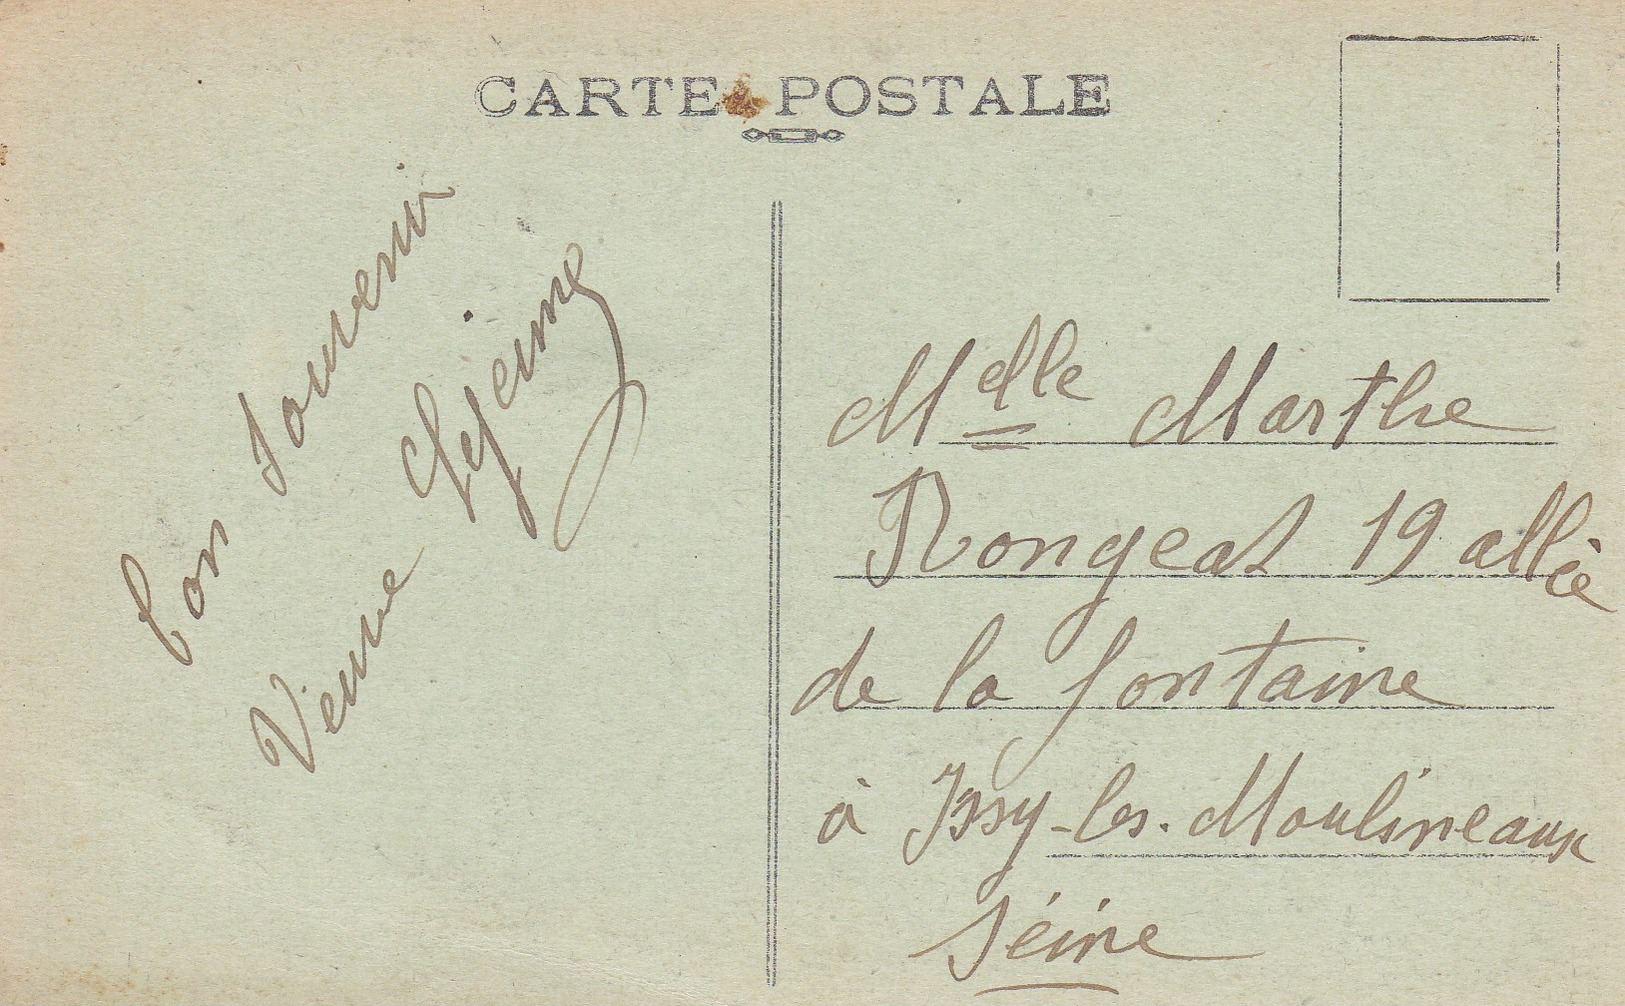 CARTE POSTALE
bon souvenir
Veuve Lejeune
Melle Marthe
Rongeat 19 allée
de la fontaine
à Issy-les-Moulineaux
Séine